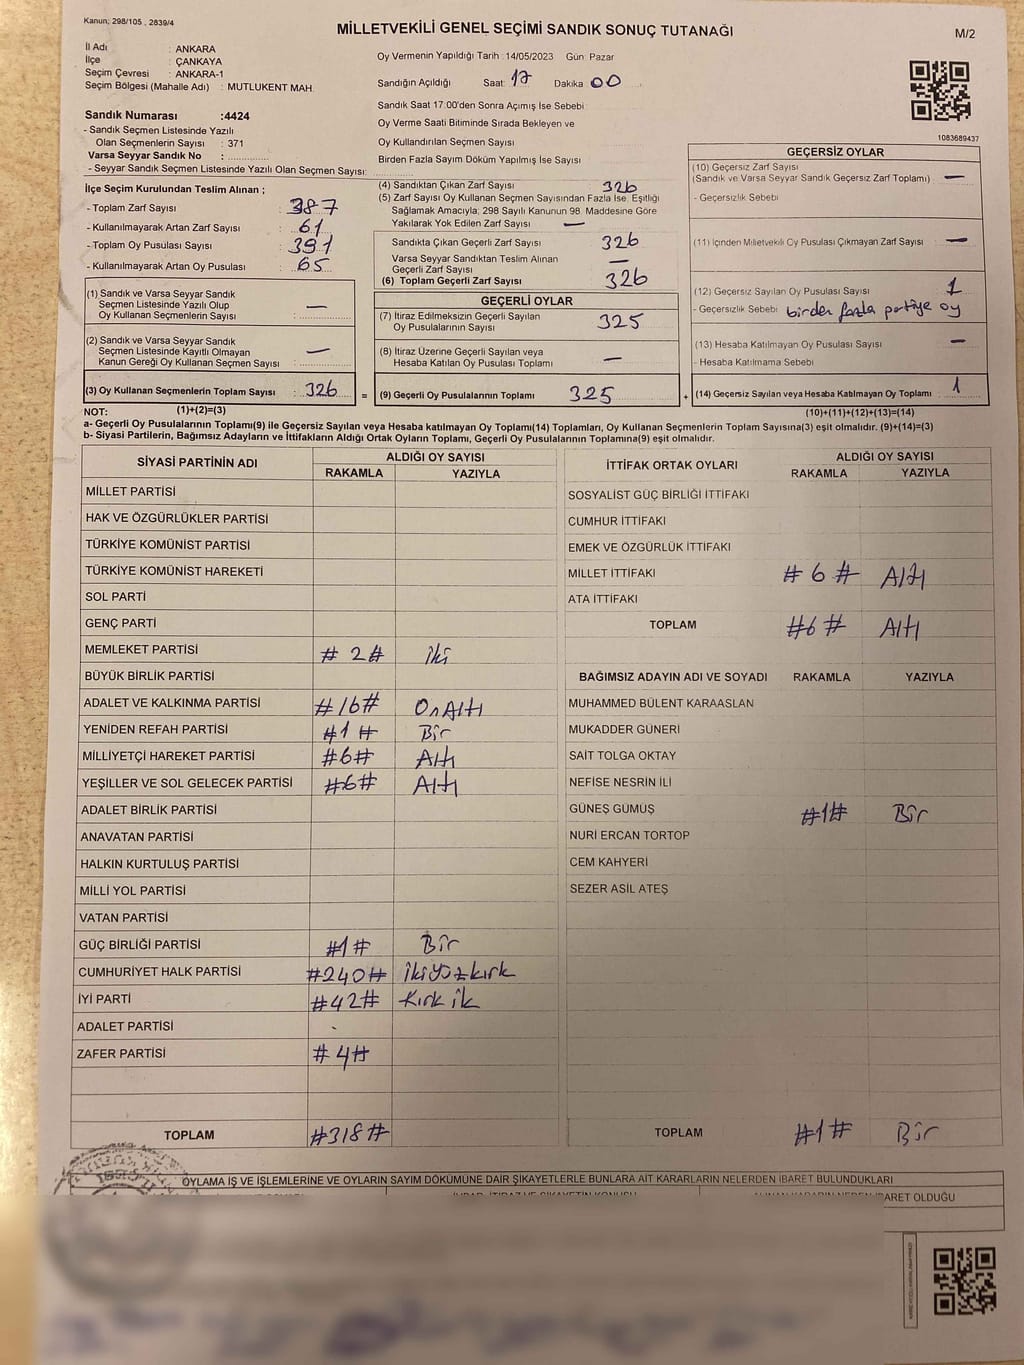 Kanun; 298/105 , 2839/4
MİLLETVEKİLİ GENEL SEÇİMİ SANDIK SONUÇ TUTANAĞI
M/2
İl Adı : ANKARA
İlçe : ÇANKAYA
Seçim Çevresi : ANKARA-1
Seçim Bölgesi (Mahalle Adı) : MUTLUKENT MAH.
Oy Vermenin Yapıldığı Tarih : 14/05/2023 Gün: Pazar
Sandığın Açıldığı Saat: 17 Dakika 00
Sandık Saat 17:00'den Sonra Açımış İse Sebebi
Oy Verme Saati Bitiminde Sırada Bekleyen ve
Oy Kullandırılan Seçmen Sayısı
Birden Fazla Sayım Döküm Yapılmış İse Sayısı
1083689437
Sandık Numarası :4424
- Sandık Seçmen Listesinde Yazılı
Olan Seçmenlerin Sayısı : 371
Varsa Seyyar Sandık No :
- Seyyar Sandık Seçmen Listesinde Yazılı Olan Seçmen Sayısı:
İlçe Seçim Kurulundan Teslim Alınan ;
- Toplam Zarf Sayısı : 387
- Kullanılmayarak Artan Zarf Sayısı : 61
- Toplam Oy Pusulası Sayısı : 391
- Kullanılmayarak Artan Oy Pusulası : 65
(1) Sandık ve Varsa Seyyar Sandık
Seçmen Listesinde Yazılı Olup
Oy Kullanan Seçmenlerin Sayısı : —
(2) Sandık ve Varsa Seyyar Sandık
Seçmen Listesinde Kayıtlı Olmayan
Kanun Gereği Oy Kullanan Seçmen Sayısı : —
(3) Oy Kullanan Seçmenlerin Toplam Sayısı : 326
(4) Sandıktan Çıkan Zarf Sayısı 326
(5) Zarf Sayısı Oy Kullanan Seçmen Sayısından Fazla İse, Eşitliği
Sağlamak Amacıyla; 298 Sayılı Kanunun 98. Maddesine Göre
Yakılarak Yok Edilen Zarf Sayısı —
Sandıkta Çıkan Geçerli Zarf Sayısı 326
Varsa Seyyar Sandıktan Teslim Alınan
Geçerli Zarf Sayısı —
(6) Toplam Geçerli Zarf Sayısı 326
GEÇERLİ OYLAR
(7) İtiraz Edilmeksizin Geçerli Sayılan
Oy Pusulalarının Sayısı 325
(8) İtiraz Üzerine Geçerli Sayılan veya
Hesaba Katılan Oy Pusulası Toplamı —
= (9) Geçerli Oy Pusulalarının Toplamı 325
GEÇERSİZ OYLAR
(10) Geçersiz Zarf Sayısı
(Sandık ve Varsa Seyyar Sandık Geçersiz Zarf Toplamı) —
- Geçersizlik Sebebi
(11) İçinden Milletvekili Oy Pusulası Çıkmayan Zarf Sayısı —
(12) Geçersiz Sayılan Oy Pusulası Sayısı 1
- Geçersizlik Sebebi birden fazla partiye oy
(13) Hesaba Katılmayan Oy Pusulası Sayısı —
- Hesaba Katılmama Sebebi
+ (14) Geçersiz Sayılan veya Hesaba Katılmayan Oy Toplamı 1
NOT: (1)+(2)=(3)
(10)+(11)+(12)+(13)=(14)
a- Geçerli Oy Pusulalarının Toplamı(9) ile Geçersiz Sayılan veya Hesaba katılmayan Oy Toplamı(14) Toplamları, Oy Kullanan Seçmenlerin Toplam Sayısına(3) eşit olmalıdır. (9)+(14)=(3)
b- Siyasi Partilerin, Bağımsız Adayların ve İttifakların Aldığı Ortak Oyların Toplamı, Geçerli Oy Pusulalarının Toplamına(9) eşit olmalıdır.
SİYASİ PARTİNİN ADI
ALDIĞI OY SAYISI
RAKAMLA YAZIYLA
MİLLET PARTİSİ
HAK VE ÖZGÜRLÜKLER PARTİSİ
TÜRKİYE KOMÜNİST PARTİSİ
TÜRKİYE KOMÜNİST HAREKETİ
SOL PARTİ
GENÇ PARTİ
MEMLEKET PARTİSİ # 2# iki
BÜYÜK BİRLİK PARTİSİ
ADALET VE KALKINMA PARTİSİ #16# OnAltı
YENİDEN REFAH PARTİSİ #1# Bir
MİLLİYETÇİ HAREKET PARTİSİ #6# Altı
YEŞİLLER VE SOL GELECEK PARTİSİ #6# Altı
ADALET BİRLİK PARTİSİ
ANAVATAN PARTİSİ
HALKIN KURTULUŞ PARTİSİ
MİLLİ YOL PARTİSİ
VATAN PARTİSİ
GÜÇ BİRLİĞİ PARTİSİ #1# Bir
CUMHURİYET HALK PARTİSİ #240# ikiyüzkırk
İYİ PARTİ #42# Kırk ik
ADALET PARTİSİ
ZAFER PARTİSİ # 4#
TOPLAM #318#
İTTİFAK ORTAK OYLARI
ALDIĞI OY SAYISI
RAKAMLA YAZIYLA
SOSYALİST GÜÇ BİRLİĞİ İTTİFAKI
CUMHUR İTTİFAKI
EMEK VE ÖZGÜRLÜK İTTİFAKI
MİLLET İTTİFAKI # 6 # Altı
ATA İTTİFAKI
TOPLAM #6 # Altı
BAĞIMSIZ ADAYIN ADI VE SOYADI RAKAMLA YAZIYLA
MUHAMMED BÜLENT KARAASLAN
MUKADDER GÜNERİ
SAİT TOLGA OKTAY
NEFİSE NESRİN İLİ
GÜNEŞ GÜMÜŞ #1# Bir
NURİ ERCAN TORTOP
CEM KAHYERİ
SEZER ASİL ATEŞ
TOPLAM #1# Bir
OYLAMA İŞ VE İŞLEMLERİNE VE OYLARIN SAYIM DÖKÜMÜNE DAİR ŞİKAYETLERLE BUNLARA AİT KARARLARIN NELERDEN İBARET BULUNDUKLARI